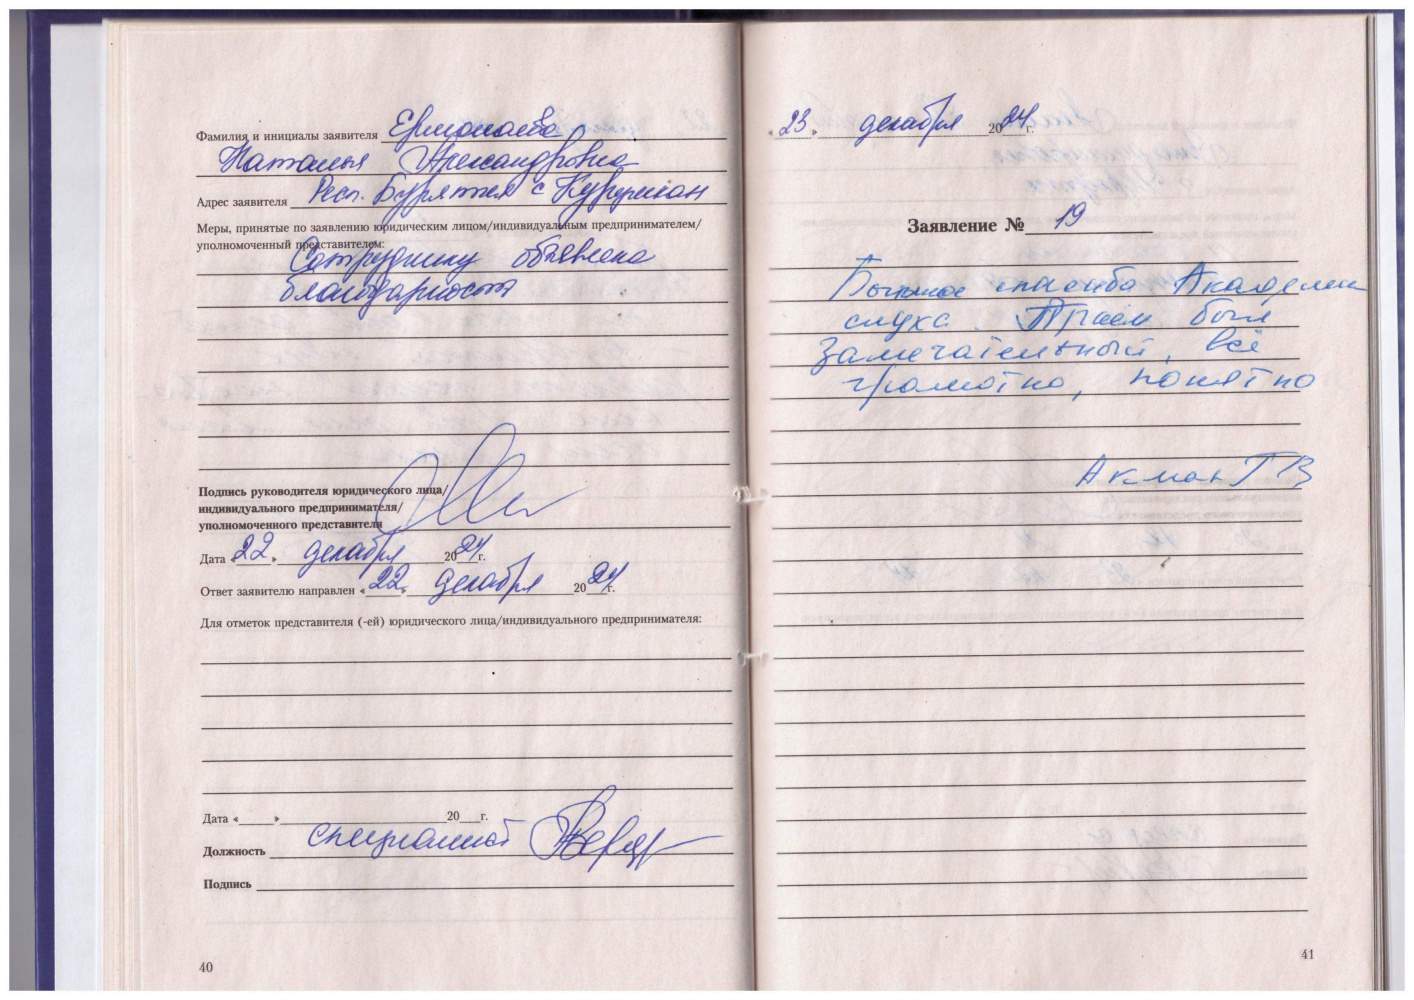 Фамилия и инициалы заявителя Ермолаева
Наталья Александровна
Адрес заявителя Респ. Бурятия с
Меры, принятые по заявлению юридическим лицом/индивидуальным предпринимателем/
уполномоченный представителем:
Сотруднику объявлена
благодарность
Подпись руководителя юридического лица/
индивидуального предпринимателя/
уполномоченного представителя
Дата «22» декабря 2024г.
Ответ заявителю направлен «22» декабря 2024г.
Для отметок представителя (-ей) юридического лица/индивидуального предпринимателя:
Дата «____»____ 20__г.
Должность специалист
Подпись
40
«23» декабря 2024г.
Заявление № 19
Большое спасибо Академии
слуха. Приём был
замечательный, всё
грамотно, понятно
Акман Г В
41